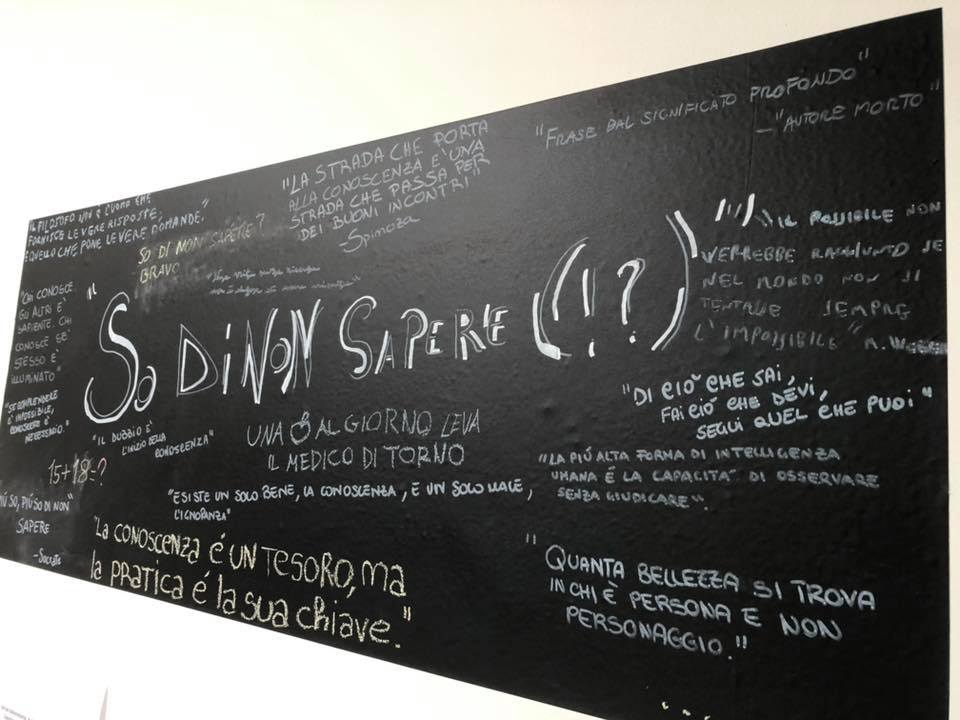 "IL FILOSOFO NON È L'UOMO CHE
FORNISCE LE VERE RISPOSTE;
È QUELLO CHE PONE LE VERE DOMANDE."
"LA STRADA CHE PORTA
ALLA CONOSCENZA E' UNA
STRADA CHE PASSA PER
DEI BUONI INCONTRI"
-Spinoza
"FRASE DAL SIGNIFICATO PROFONDO"
-"AUTORE MORTO"
SO DI NON SAPERE?
BRAVO
"CHI CONOSCE
GLI ALTRI È
SAPIENTE. CHI
CONOSCE SE'
STESSO È
ILLUMINATO"
"SO DI NON SAPERE (!?)"
IL POSSIBILE NON
VERREBBE RAGGIUNTO SE
NEL MONDO NON SI
TENTASSE SEMPRE
L'IMPOSSIBILE"
"SE COMPRENDERE
È IMPOSSIBILE,
CONOSCERE È
NECESSARIO."
"IL DUBBIO È
L'INIZIO DELLA
CONOSCENZA"
UNA AL GIORNO LEVA
IL MEDICO DI TORNO
"DI CIÒ CHE SAI,
FAI CIÒ CHE DEVI,
SEGUI QUEL CHE PUOI"
15+18=?
"LA PIÚ ALTA FORMA DI INTELLIGENZA
UMANA É LA CAPACITA' DI OSSERVARE
SENZA GIUDICARE".
"ESISTE UN SOLO BENE, LA CONOSCENZA, E UN SOLO MALE,
L'IGNORANZA"
PIÚ SO, PIÚ SO DI NON
SAPERE"
-Socrate
"La CONOSCENZA É UN TESORO, ma
la PRATICA é la sua chiave."
"QUANTA BELLEZZA SI TROVA
IN CHI È PERSONA E NON
PERSONAGGIO."